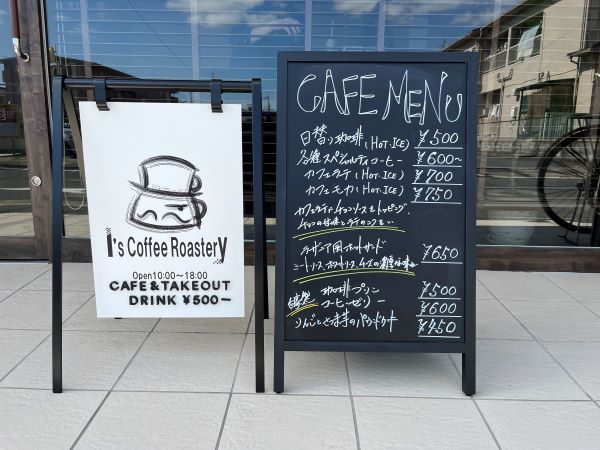 I's Coffee Roastery
Open10:00～18:00
CAFE&TAKEOUT
DRINK ¥500ー
CAFE MENU
日替り珈琲 (HOT・ICE) ¥500
各種スペシャルティコーヒー ¥600～
カフェラテ (HOT・ICE) ¥700
カフェモカ (HOT・ICE) ¥750
カフェラテにチョコソースをトッピング。
チョコの甘味とラテのコクを…
ラザニア風ホットサンド ¥650
ミートソース、ホワイトソース、チーズの
自家製 珈琲プリン ¥500
コーヒーゼリー ¥600
りんごとさつま芋のパウンドケーキ ¥450